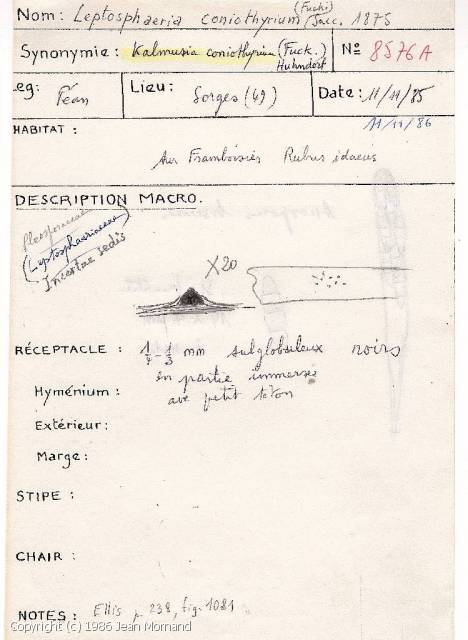 Nom: Leptosphaeria coniothyrium (Fuck.) Sacc. 1875
Synonymie: Kalmusia coniothyrium (Fuck.) Huhndorf Nº 8576A
Leg: Féan Lieu: Sorges (49) Date: 11/11/85
11/11/86
HABITAT :
sur Framboisier Rubus idaeus
DESCRIPTION MACRO.
Pleosporaceae
(Leptosphaeriaceae)
Incertae sedis
X20
RÉCEPTACLE : 1/4 - 1/3 mm subglobuleux noirs
en partie immersés
Hyménium :
avec petit téton
Extérieur :
Marge :
STIPE :
CHAIR :
NOTES : Ellis p 238, fig. 1081
Copyright (c) 1986 Jean Mornand